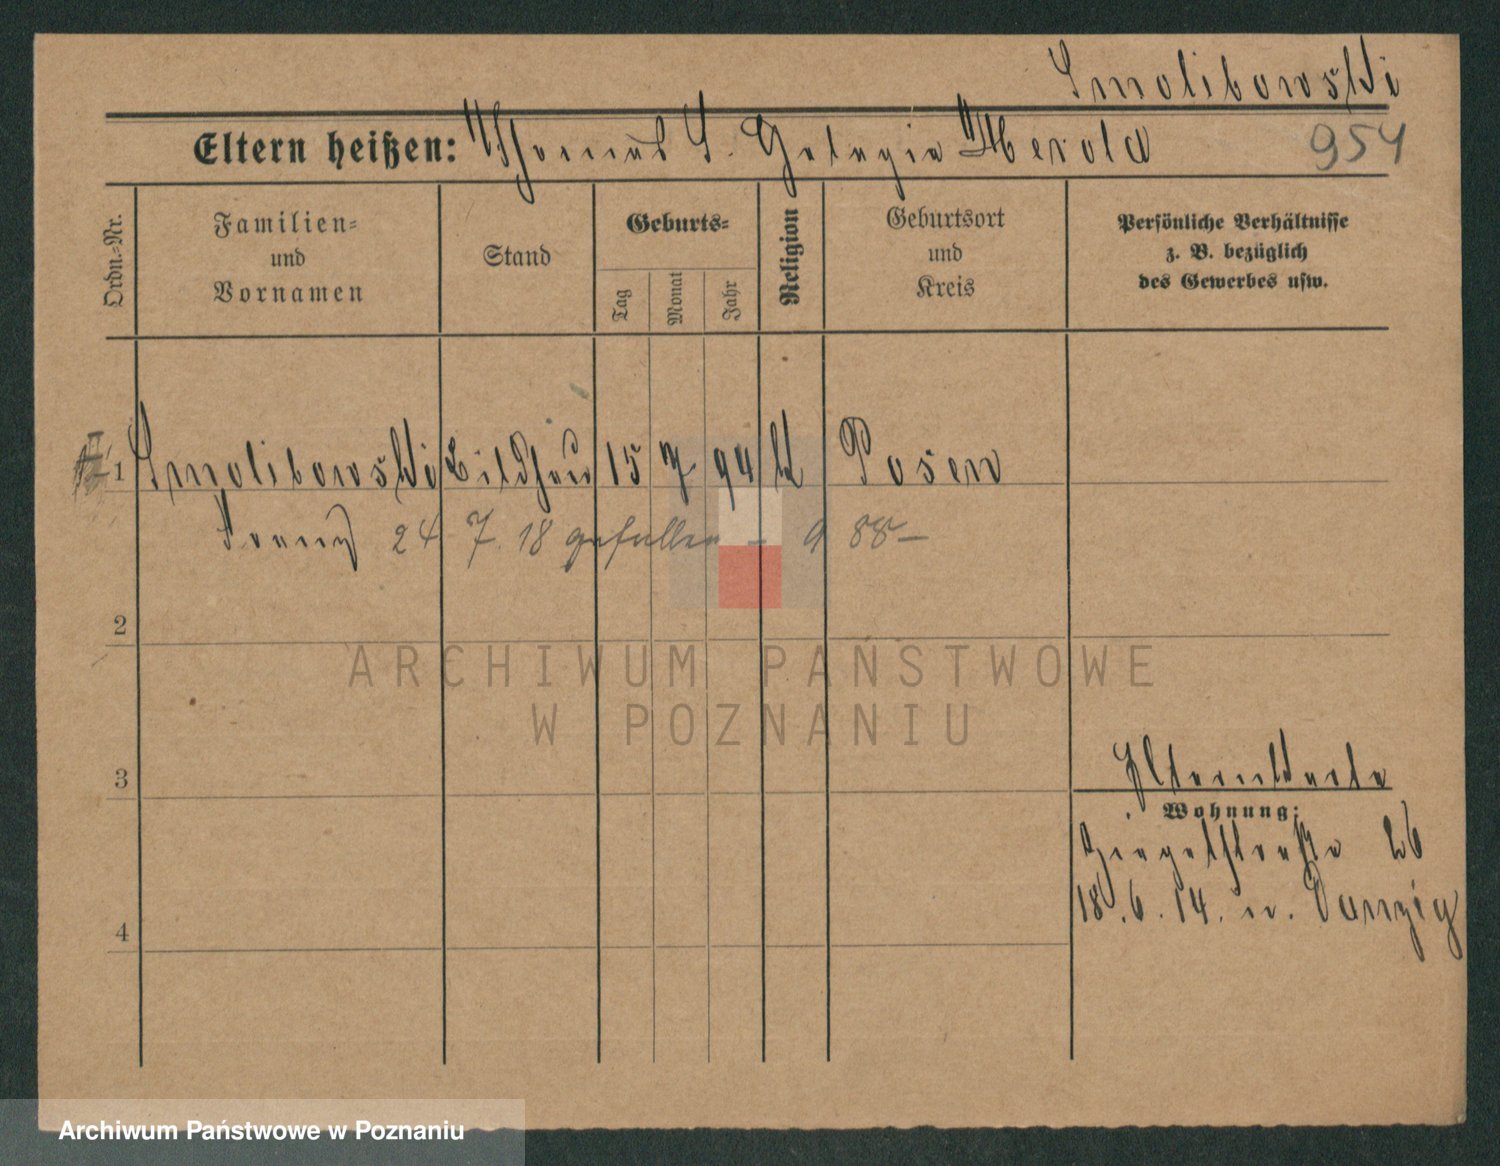 Smolibowski
Eltern heißen: Thomas S. Pelagia Herold 954
Ordn.-Nr. Familien- und Vornamen Stand Geburts- Tag Monat Jahr Religion Geburtsort und Kreis Persönliche Verhältnisse z. B. bezüglich des Gewerbes usw.
1 Smolibowski Bildhau 15 7 94 k Posen
Franz 24 7. 18 gefallen - 9 88 -
2
ARCHIWUM PAŃSTWOWE
W POZNANIU
3
Elternkarte
Wohnung:
Ziegelstraße 26
18.6.14. n. Danzig
4
Archiwum Państwowe w Poznaniu